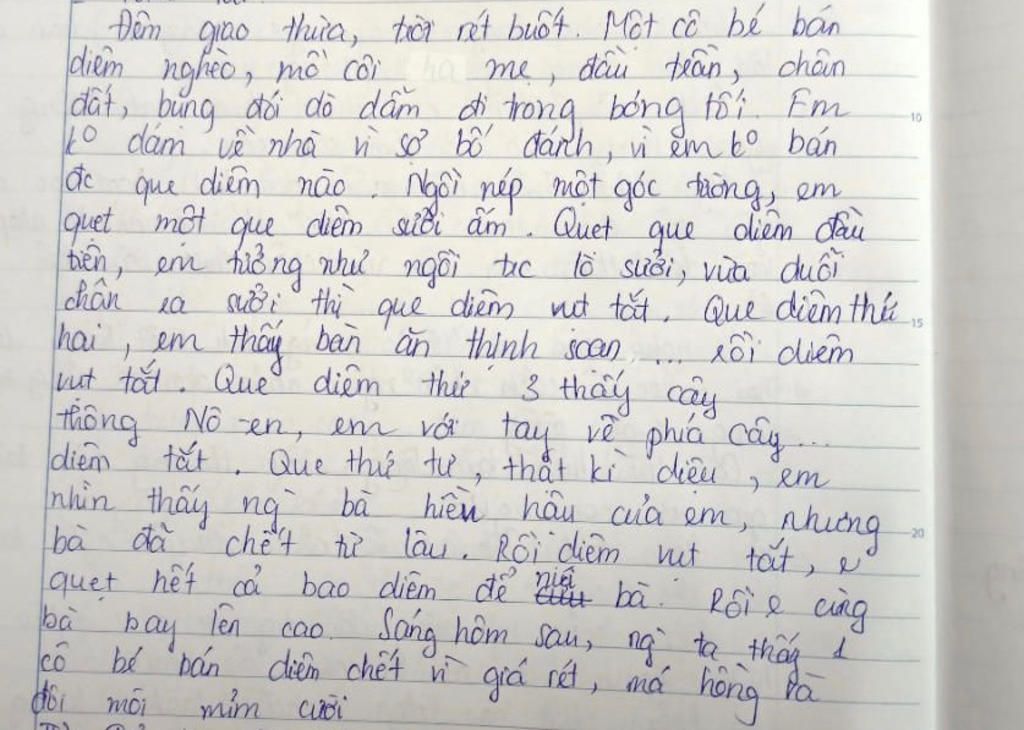 Đêm giao thừa, trời rét buốt. Một cô bé bán
diêm nghèo, mồ côi mẹ, đầu trần, chân
đất, bụng đói dò dẫm đi trong bóng tối. Em
k° dám về nhà vì sợ bố đánh, vì em k° bán
đc que diêm nào. Ngồi nép một góc tường, em
quẹt một que diêm sưởi ấm. Quẹt que diêm đầu
tiên, em tưởng như ngồi trc lò sưởi, vừa duỗi
chân ra sưởi thì que diêm vụt tắt. Que diêm thứ
hai, em thấy bàn ăn thịnh soạn .... rồi diêm
vụt tắt. Que diêm thứ 3 thấy cây
thông Nô-en, em với tay về phía cây...
diêm tắt. Que thứ tư, thật kì diệu, em
nhìn thấy ng` bà hiền hậu của em, nhưng
bà đã chết từ lâu. Rồi diêm vụt tắt, e
quẹt hết cả bao diêm để níu bà. Rồi e cùng
bà bay lên cao. Sáng hôm sau, ng` ta thấy 1
cô bé bán diêm chết vì giá rét, má hồng và
đôi môi mỉm cười